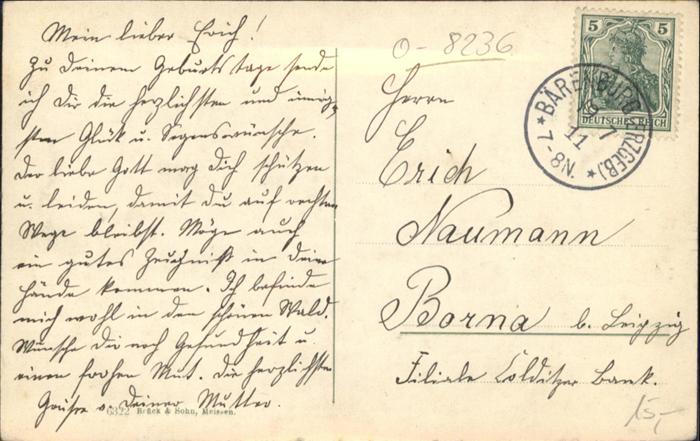 Mein lieber Erich!
Zu Deinem Geburtstage sende
ich Dir die herzlichsten und innig-
sten Glück u. Segenswünsche.
Der liebe Gott mag Dich schützen
u. leiden, damit Du auf rechten
Wege bleibst. Möge auch
ein gutes Zeugniß in Deine
Hände kommen. Ich befinde
mich wohl in den schönen Wald.
Wünsche Dir noch Gesundheit u.
einen frohen Mut. Die herzlichsten
Grüße v. Deiner Mutter.
6322 Brück & Sohn, Meissen.
0-8236
5 5
DEUTSCHES REICH
BÄRENBURG (ERZGEB)
11 7
7-8N.
Herrn
Erich
Naumann
Borna b. Leipzig
Filiale Colditzer Bank.
15,-